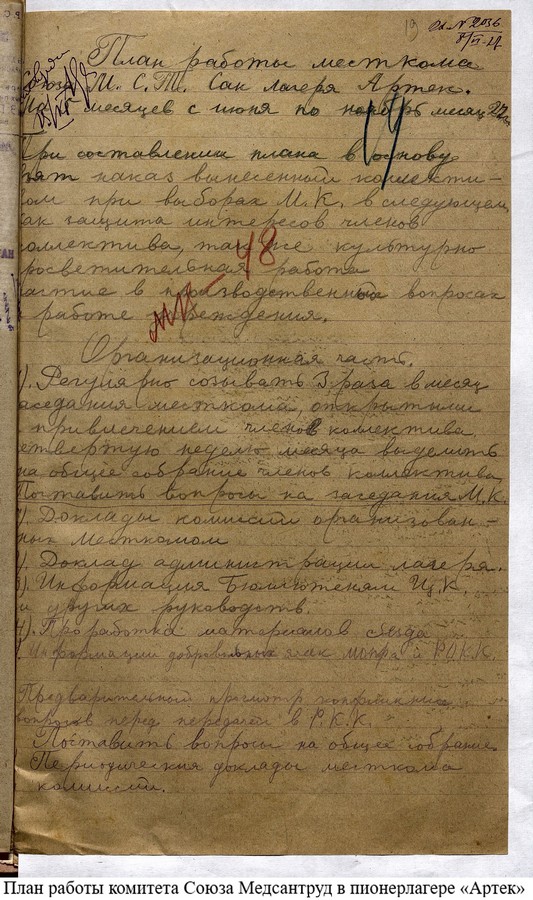 19
Вх. № 2036
План работы месткома
Союза М. С. Т. Сан лагеря Артек.
месяцев с июня по ноябрь месяц 27 г.
14
При составлении плана в основу
взят наказ вынесенный коллекти-
вом при выборах М.К. в следующем
как защита интересов членов
коллектива, так же культурно
просветительная работа
участие в производственных вопросах
работе учреждения.
МК-48
Организационная часть.
1). Регулярно созывать 3 раза в месяц
заседания месткома, открытыми
с привлечением членов коллектива,
четвертую неделю месяца выделить
на общее собрание членов коллектива
Поставить вопросы на заседания М.К.
1). Доклады комиссий организован-
ных Месткомом
2). Доклад администрации лагеря.
3). Информация Бюллютеням Ц.К.
и других руководств.
4). Проработка материалов съезда
Информации добровольных ячек мопра и Р.О.К.К.
Предварительный просмотр конфликтных
вопросов перед передачей в Р.К.К.
Поставить вопросы на общее собрание
Периодическия доклады месткома
комиссий.
План работы комитета Союза Медсантруд в пионерлагере «Артек»